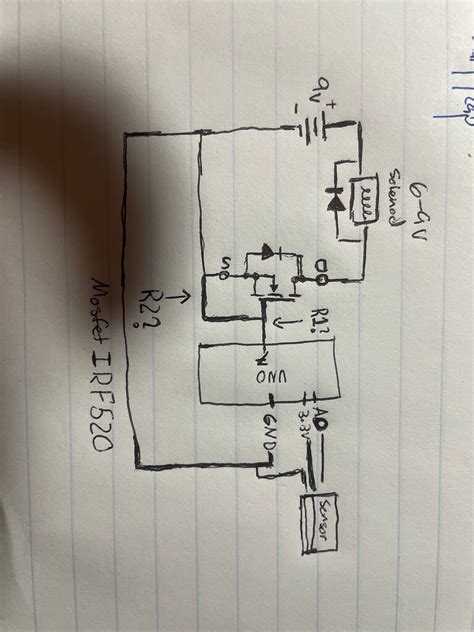 6-9V
Solenod
9v
+
-
D
S
R1?
R2?
UNO
A0
3.3V
GND
Sensor
Mosfet IRF520